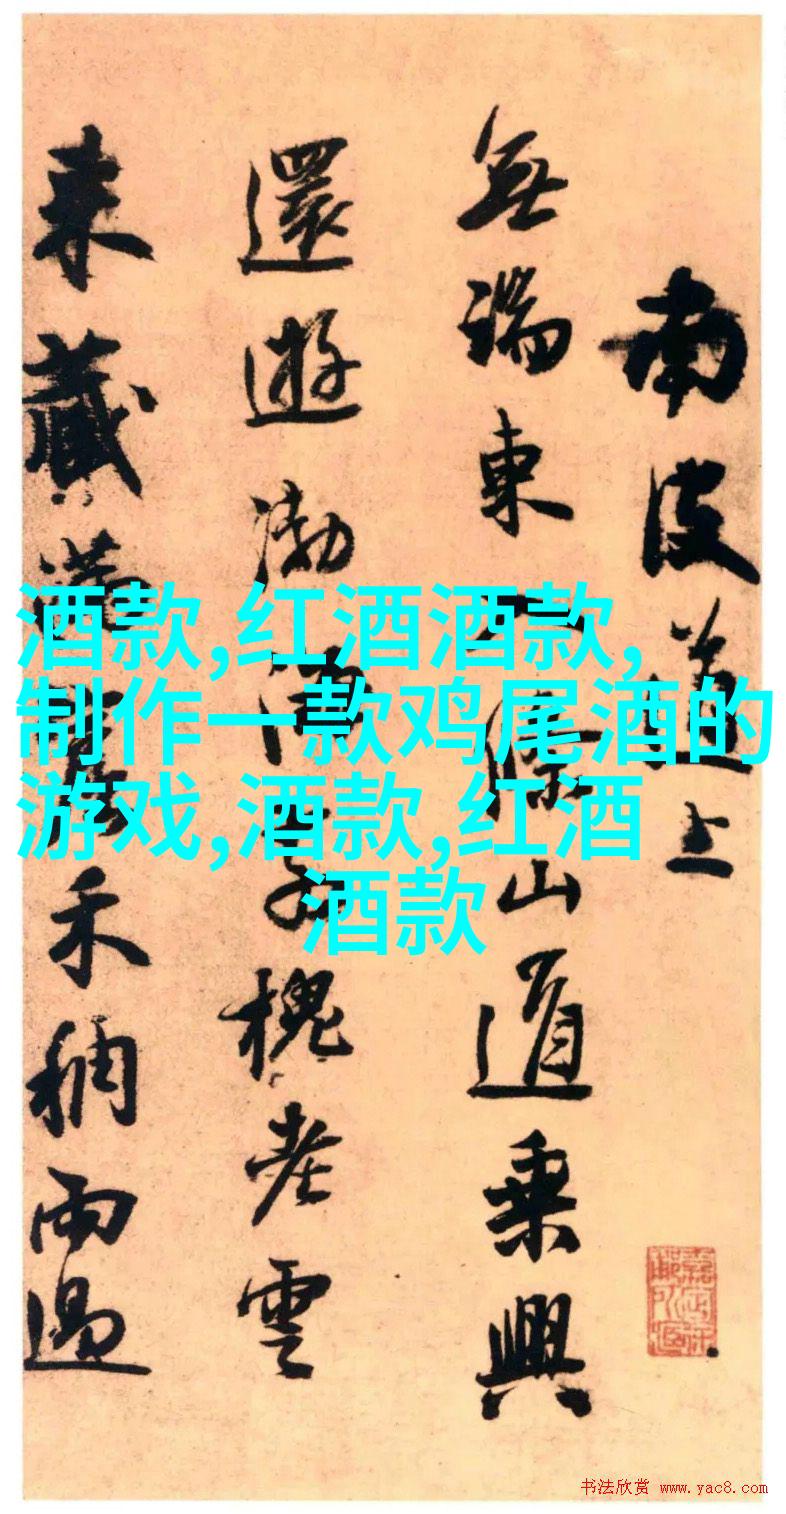 南皮道上
無端東條山道乘興
還遊渤槐老雲
来藏滿禾稠雨過
酒款,红酒酒款,
制作一款鸡尾酒的
游戏,酒款,红酒
酒款
书法欣赏 www.yac8.com